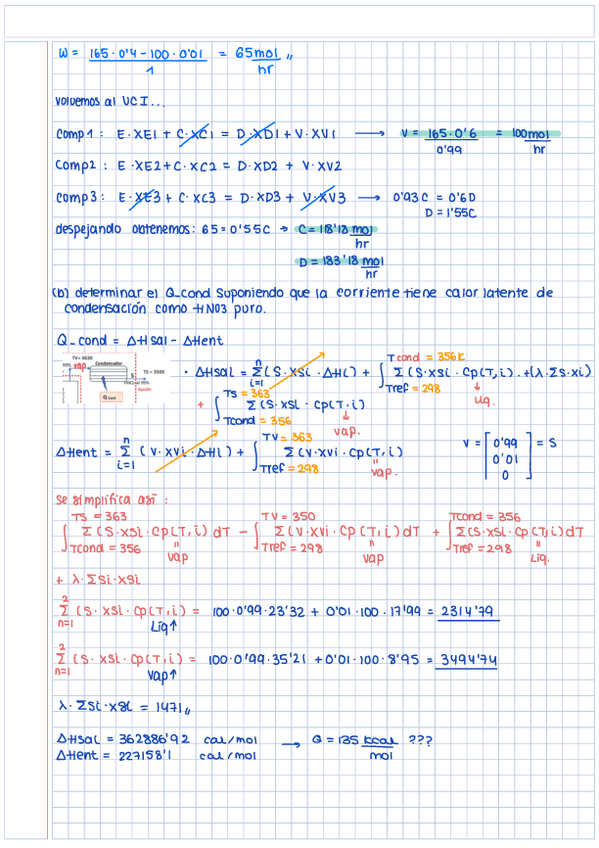 W = 165 · 0'4 - 100 · 0'01 / 1 = 65 mol/hr //
volvemos al VC I...
Comp 1 : E · XE1 + C · XC1 = D · XD1 + V · XV1 → V = 165 · 0'6 / 0'99 = 100 mol/hr
Comp 2 : E · XE2 + C · XC2 = D · XD2 + V · XV2
Comp 3 : E · XE3 + C · XC3 = D · XD3 + V · XV3 → 0'93 C = 0'6 D
D = 1'55 C
despejando obtenemos : 65 = 0'55 C → C = 118'18 mol/hr
D = 183'18 mol/hr
(b) determinar el Q_cond suponiendo que la corriente tiene calor latente de
condensación como HNO3 puro.
Q_cond = ΔHsal - ΔHent
TV= 363K
Condensador
vap.
S
TS = 350K
99%
líquido
Q_cond
· ΔHsal = n Σ i=1 (S · XSi · ΔHi) + ∫ Tcond = 356K Tref = 298 Σ (S · XSi · Cp(T, i) . + (λ · ΣS · xi)
liq.
+ ∫ TS = 363 Tcond = 356 Σ (S · XSi · Cp(T, i)
vap.
ΔHent = n Σ i=1 (V · XVi · ΔHi) + ∫ TV = 363 Tref = 298 Σ (V · XVi · Cp(T, i)
vap.
V = [0'99 0'01 0] = S
Se simplifica así :
∫ TS = 363 Tcond = 356 Σ (S · XSi · Cp(T, i) dT - ∫ TV = 350 Tref = 298 Σ (V · XVi · Cp(T, i) dT + ∫ Tcond = 356 Tref = 298 Σ (S · XSi · Cp(T, i) dT
vap vap Liq.
+ λ · ΣSi · XSi
2 Σ n=1 (S · XSi · Cp(T, i) = 100 · 0'99 · 23'32 + 0'01 · 100 · 17'99 = 2314'79
Liq ↑
2 Σ n=1 (S · XSi · Cp(T, i) = 100 · 0'99 · 35'21 + 0'01 · 100 · 8'95 = 3494'74
vap ↑
λ · ΣSi · XSi = 1471 //
ΔHsal = 362886'92 cal/mol → Q = 135 kcal/mol ???
ΔHent = 227158'1 cal/mol